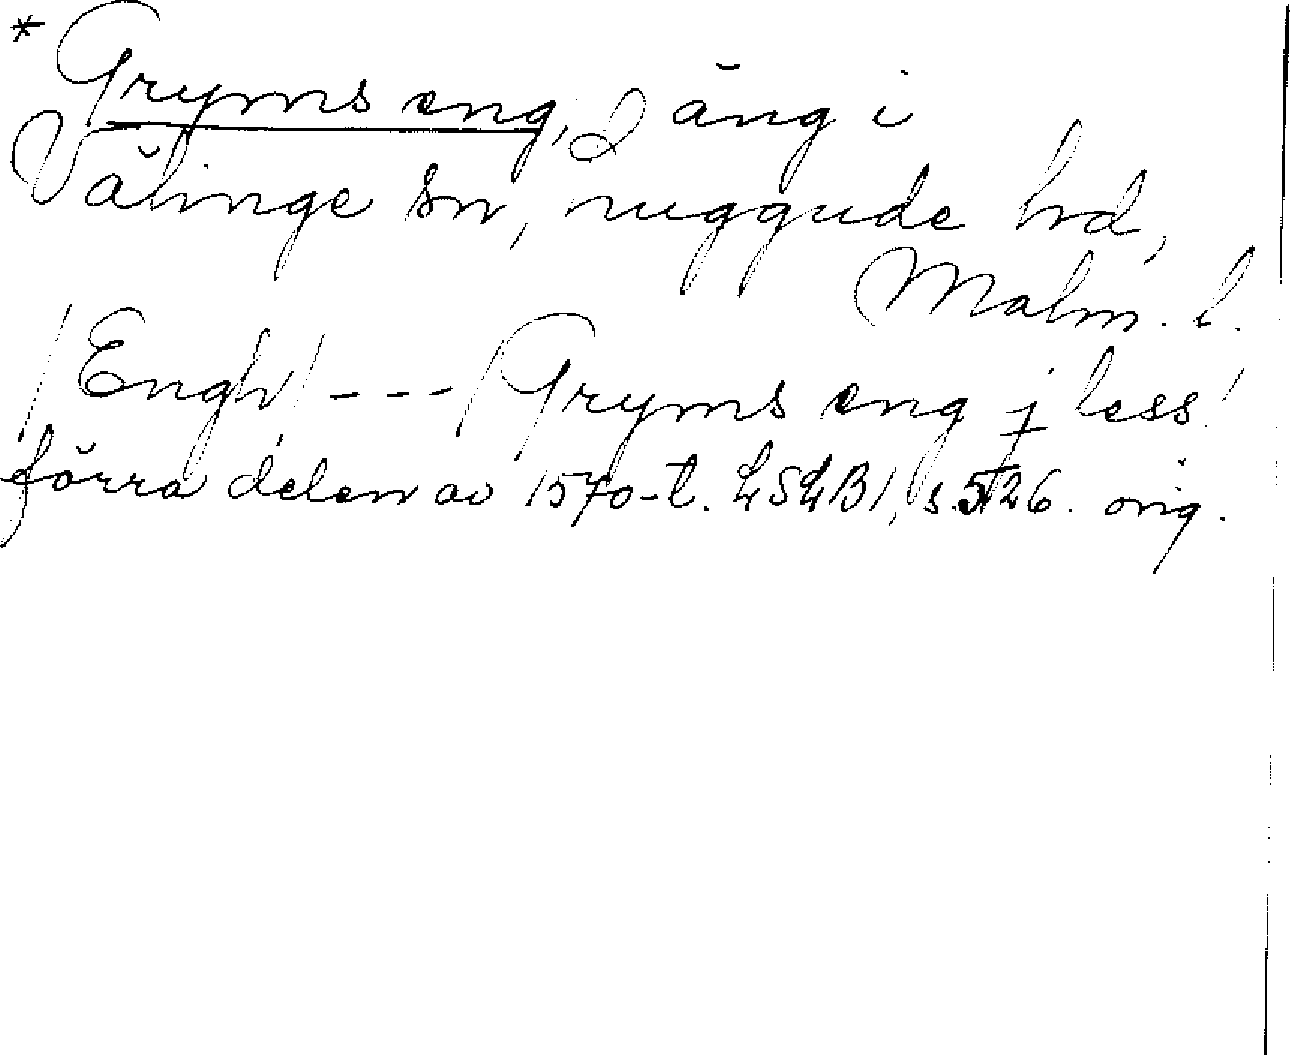 * Gryms eng, äng i
Välinge sn, ruggude hd,
Malm. l.
/Engh/ --- /Gryms eng j less/
förra delen av 1570-t. LSLB1, s. 526. orig.